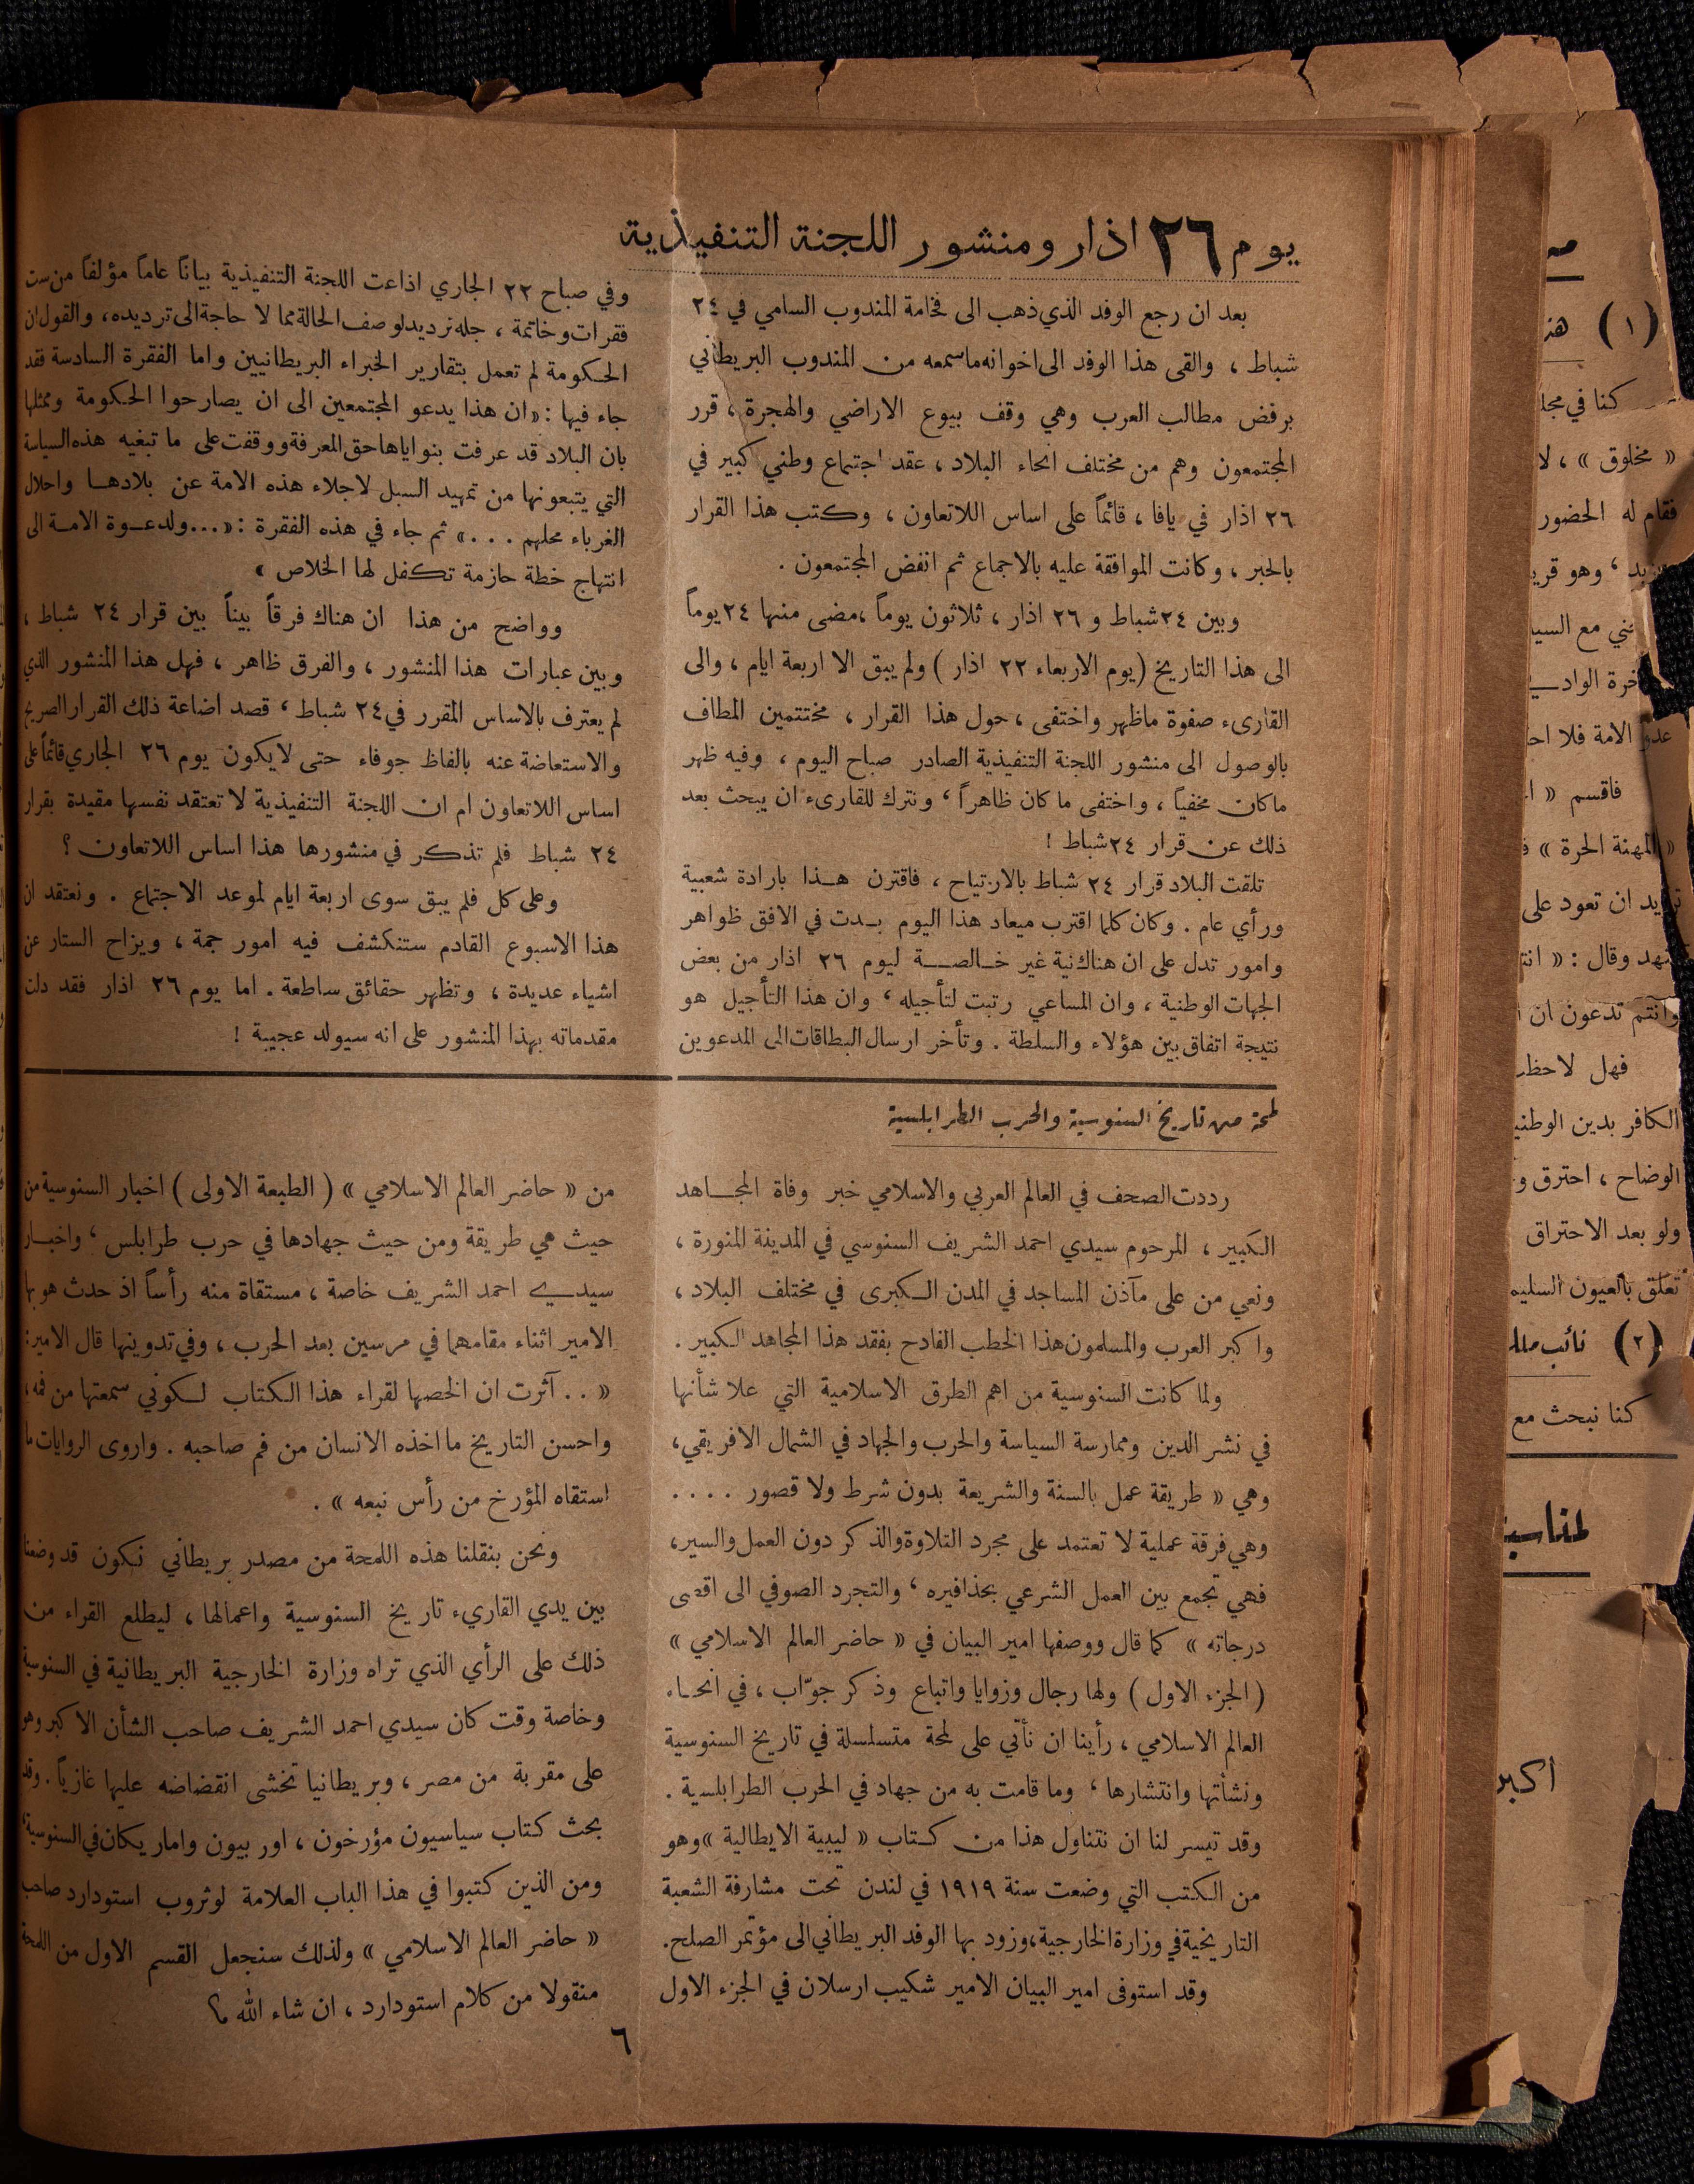 يوم ٢٦ اذار ومنشور اللجنة التنفيذية
بعد ان رجع الوفد الذي ذهب الى فخامة المندوب السامي في ٢٤
شباط ، والقى هذا الوفد الى اخوانه ما سمعه من المندوب البريطاني
برفض مطالب العرب وهي وقف بيوع الاراضي والهجرة ، قرر
المجتمعون وهم من مختلف انحاء البلاد ، عقد اجتماع وطني كبير في
٢٦ اذار في يافا ، قائماً على اساس اللاتعاون ، وكتب هذا القرار
بالحبر ، وكانت الموافقة عليه بالاجماع ثم انفض المجتمعون .
وبين ٢٤ شباط و ٢٦ اذار ، ثلاثون يوماً ، مضى منها ٢٤ يوماً
الى هذا التاريخ (يوم الاربعاء ٢٢ اذار ) ولم يبق الا اربعة ايام ، والى
القارىء صفوة ماظهر واختفى ، حول هذا القرار ، مختتمين المطاف
بالوصول الى منشور اللجنة التنفيذية الصادر صباح اليوم ، وفيه ظهر
ماكان مخفياً ، واختفى ما كان ظاهراً ، ونترك للقارىء ان يبحث بعد
ذلك عن قرار ٢٤ شباط !
تلقت البلاد قرار ٢٤ شباط بالارتياح ، فاقترن هذا بارادة شعبية
ورأي عام . وكان كلما اقترب ميعاد هذا اليوم بدت في الافق ظواهر
وامور تدل على ان هناك نية غير خالصة ليوم ٢٦ اذار من بعض
الجهات الوطنية ، وان المساعي رتبت لتأجيله ، وان هذا التأجيل هو
نتيجة اتفاق بين هؤلاء والسلطة . وتأخر ارسال البطاقات الى المدعوين
وفي صباح ٢٢ الجاري اذاعت اللجنة التنفيذية بياناً عاماً مؤلفاً من ست
فقرات وخاتمة ، جله ترديد لوصف الحالة مما لا حاجة الى ترديده ، والقول ان
الحكومة لم تعمل بتقارير الخبراء البريطانيين واما الفقرة السادسة فقد
جاء فيها : «ان هذا يدعو المجتمعين الى ان يصارحوا الحكومة وممثلها
بان البلاد قد عرفت بنواياها حق المعرفة ووقفت على ما تبغيه هذه السياسة
التي يتبعونها من تمهيد السبل لاجلاء هذه الامة عن بلادها واحلال
الغرباء محلهم . . . » ثم جاء في هذه الفقرة : «...ولدعوة الامة الى
انتهاج خطة حازمة تكفل لها الخلاص »
وواضح من هذا ان هناك فرقاً بيناً بين قرار ٢٤ شباط ،
وبين عبارات هذا المنشور ، والفرق ظاهر ، فهل هذا المنشور الذي
لم يعترف بالاساس المقرر في ٢٤ شباط ، قصد اضاعة ذلك القرار الصريح
والاستعاضة عنه بالفاظ جوفاء حتى لايكون يوم ٢٦ الجاري قائماً على
اساس اللاتعاون ام ان اللجنة التنفيذية لا تعتقد نفسها مقيدة بقرار
٢٤ شباط فلم تذكر في منشورها هذا اساس اللاتعاون ؟
وعلى كل فلم يبق سوى اربعة ايام لموعد الاجتماع . ونعتقد ان
هذا الاسبوع القادم ستنكشف فيه امور جمة ، ويزاح الستار عن
اشياء عديدة ، وتظهر حقائق ساطعة . اما يوم ٢٦ اذار فقد دلت
مقدماته بهذا المنشور على انه سيولد عجيبة !
لمحة من تاريخ السنوسية والحرب الطرابلسية
رددت الصحف في العالم العربي والاسلامي خبر وفاة المجاهد
الكبير ، المرحوم سيدي احمد الشريف السنوسي في المدينة المنورة ،
ونعي من على مآذن المساجد في المدن الكبرى في مختلف البلاد ،
واكبر العرب والمسلمون هذا الخطب الفادح بفقد هذا المجاهد الكبير .
ولما كانت السنوسية من اهم الطرق الاسلامية التي علا شأنها
في نشر الدين وممارسة السياسة والحرب والجهاد في الشمال الافريقي ،
وهي « طريقة عمل بالسنة والشريعة بدون شرط ولا قصور . . . .
وهي فرقة عملية لا تعتمد على مجرد التلاوة والذكر دون العمل والسير ،
فهي تجمع بين العمل الشرعي بحذافيره ، والتجرد الصوفي الى اقصى
درجاته » كما قال ووصفها امير البيان في « حاضر العالم الاسلامي »
( الجزء الاول ) ولها رجال وزوايا واتباع وذكر جوّاب ، في انحاء
العالم الاسلامي ، رأينا ان نأتي على لمحة متسلسلة في تاريخ السنوسية
ونشأتها وانتشارها ، وما قامت به من جهاد في الحرب الطرابلسية .
وقد تيسر لنا ان نتناول هذا من كتاب « ليبية الايطالية » وهو
من الكتب التي وضعت سنة ١٩١٩ في لندن تحت مشارفة الشعبة
التاريخية في وزارة الخارجية ، وزود بها الوفد البريطاني الى مؤتمر الصلح .
وقد استوفى امير البيان الامير شكيب ارسلان في الجزء الاول
من « حاضر العالم الاسلامي » ( الطبعة الاولى ) اخبار السنوسية من
حيث هي طريقة ومن حيث جهادها في حرب طرابلس ، واخبار
سيدي احمد الشريف خاصة ، مستقاة منه رأساً اذ حدث هو بها
الامير اثناء مقامهما في مرسين بعد الحرب ، وفي تدوينها قال الامير :
« . . آثرت ان الخصها لقراء هذا الكتاب لكوني سمعتها من فمه ،
واحسن التاريخ ما اخذه الانسان من فم صاحبه . واروى الروايات ما
استقاه المؤرخ من رأس نبعه » .
ونحن بنقلنا هذه اللمحة من مصدر بريطاني نكون قد وضعنا
بين يدي القاريء تاريخ السنوسية واعمالها ، ليطلع القراء من
ذلك على الرأي الذي تراه وزارة الخارجية البريطانية في السنوسية
وخاصة وقت كان سيدي احمد الشريف صاحب الشأن الاكبر وهو
على مقربة من مصر ، وبريطانيا تخشى انقضاضه عليها غازياً . وقد
بحث كتاب سياسيون مؤرخون ، اوربيون واماريكان في السنوسية ،
ومن الذين كتبوا في هذا الباب العلامة لوثروب استودارد صاحب
« حاضر العالم الاسلامي » ولذلك سنجعل القسم الاول من اللمحة
منقولا من كلام استودارد ، ان شاء الله
٦
(١) هن
كنا في مجل
« مخلوق » ، لا
فقام له الحضور
، وهو قري
عني مع السيد
عدو الامة فلا اح
فاقسم « ا
« المهنة الحرة » ف
تريد ان تعود على
تنهد وقال : « انت
وانتم تدعون ان
فهل لاحظ
الكافر بدين الوطني
الوضاح ، احترق و
ولو بعد الاحتراق
تعلق بالعيون السليم
(٢) نائب ملل
كنا نبحث مع
لمناسب
اكبر